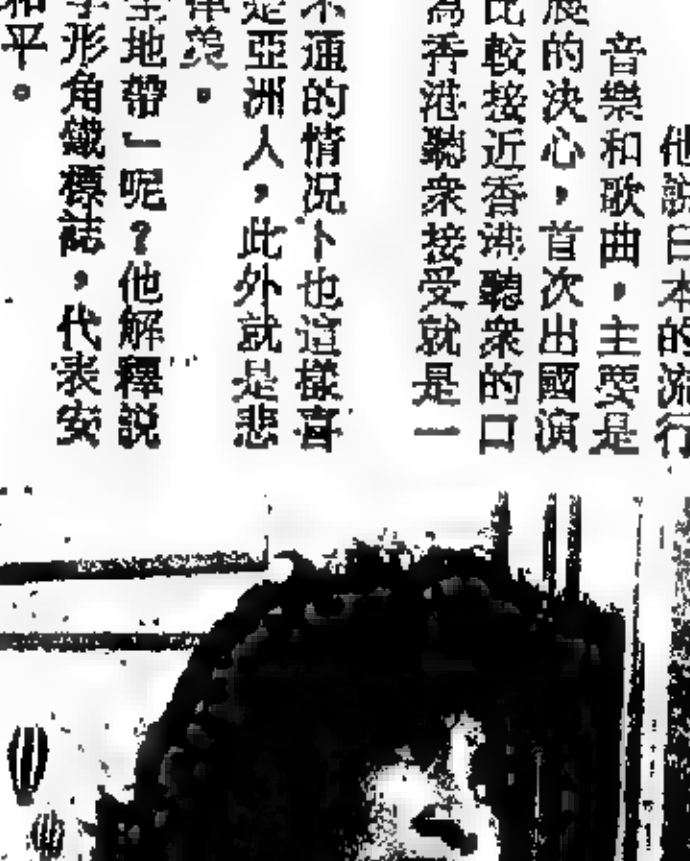 他說日本的流行
音樂和歌曲，主要是
展的決心，首次出國演
比較接近香港聽衆的口
為香港聽衆接受就是一
不通的情况下也這樣喜
是亞洲人，此外就是悲
津美。
全地帶」呢？他解釋說
字形角鐵標誌，代表安
和平。